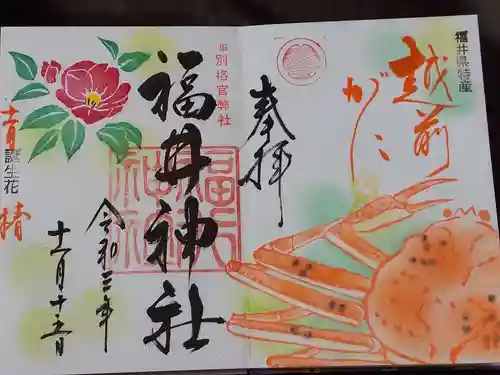 福井県特産
越前
がに
奉拝
旧
別格官弊社
福井神社
令和三年
十一月十五日
誕生花
椿